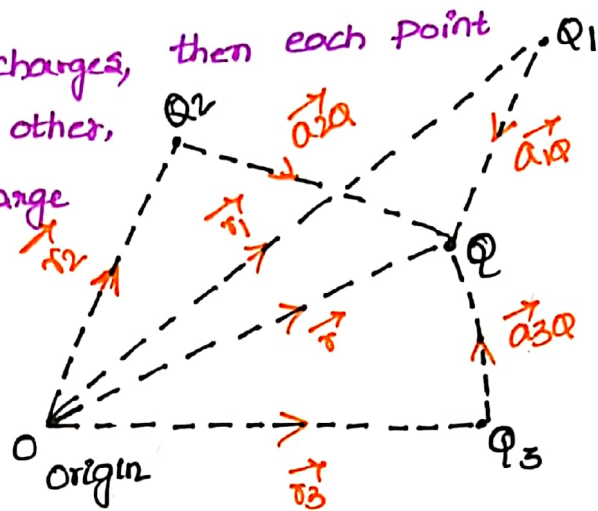 charges, then each point
other,
arge
Q2
Q1
a2Q
a1Q
r2
r1
r
Q
a3Q
O
origin
r3
Q3